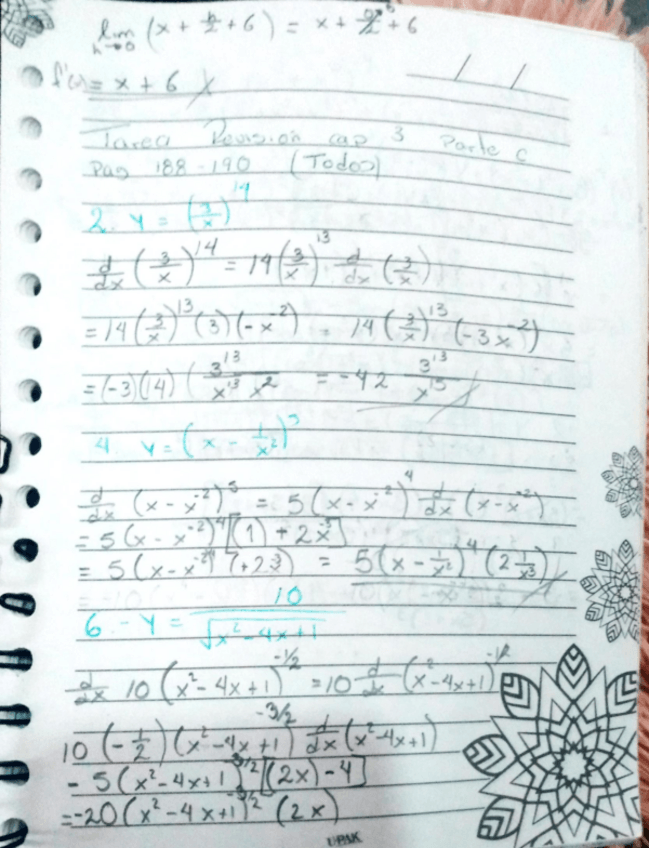 lim h→0 (x + h/2 + 6) = x + 0/2 + 6
f'(x) = x + 6
/ /
Tarea Revisión cap 3 Parte C
Pag 188-190 (Todos)
2. y = (3/x)^14
d/dx (3/x)^14 = 14(3/x)^13 d/dx (3/x)
= 14(3/x)^13 (3)(-x^-2) = 14(3/x)^13 (-3x^-2)
= (-3)(14) (3^13/x^13 x^2 = -42 3^13/x^15
4. y = (x - 1/x^2)^5
d/dx (x - x^-2)^5 = 5(x - x^-2)^4 d/dx (x - x^-2)
= 5(x - x^-2)^4 [(1) + 2x^-3]
= 5(x - x^-2)^4 = 5(x - 1/x^2)^4 (2 1/x^3)
6.- y = 10/√(x^2 - 4x + 1)
d/dx 10 (x^2 - 4x + 1)^-1/2 = 10 d/dx (x^2 - 4x + 1)^-1/2
10 (-1/2) (x^2 - 4x + 1)^-3/2 d/dx (x^2 - 4x + 1)
- 5(x^2 - 4x + 1)^-3/2 [(2x) - 4]
= -20(x^2 - 4x + 1)^-3/2 (2x)